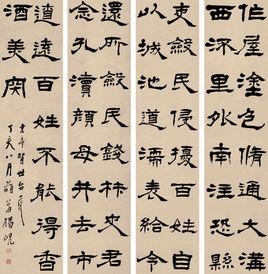 作屋塗色脩通大溝
西流里外南注恐縣
吏斂民侵擾百姓自
以城池道濡麥給令
還所斂民錢材史君
念孔瀆顏母井去市
遼遠百姓不能得香
酒美肉
賢世台屬
丁亥八月藐翁楊峴